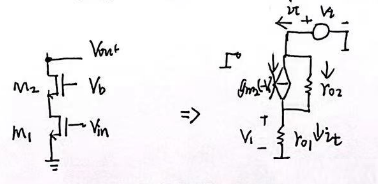 Vout
M2
Vb
M1
Vin
=>
it
+
Vt
-
gm2(-V1)
ro2
+
V1
-
ro1
it